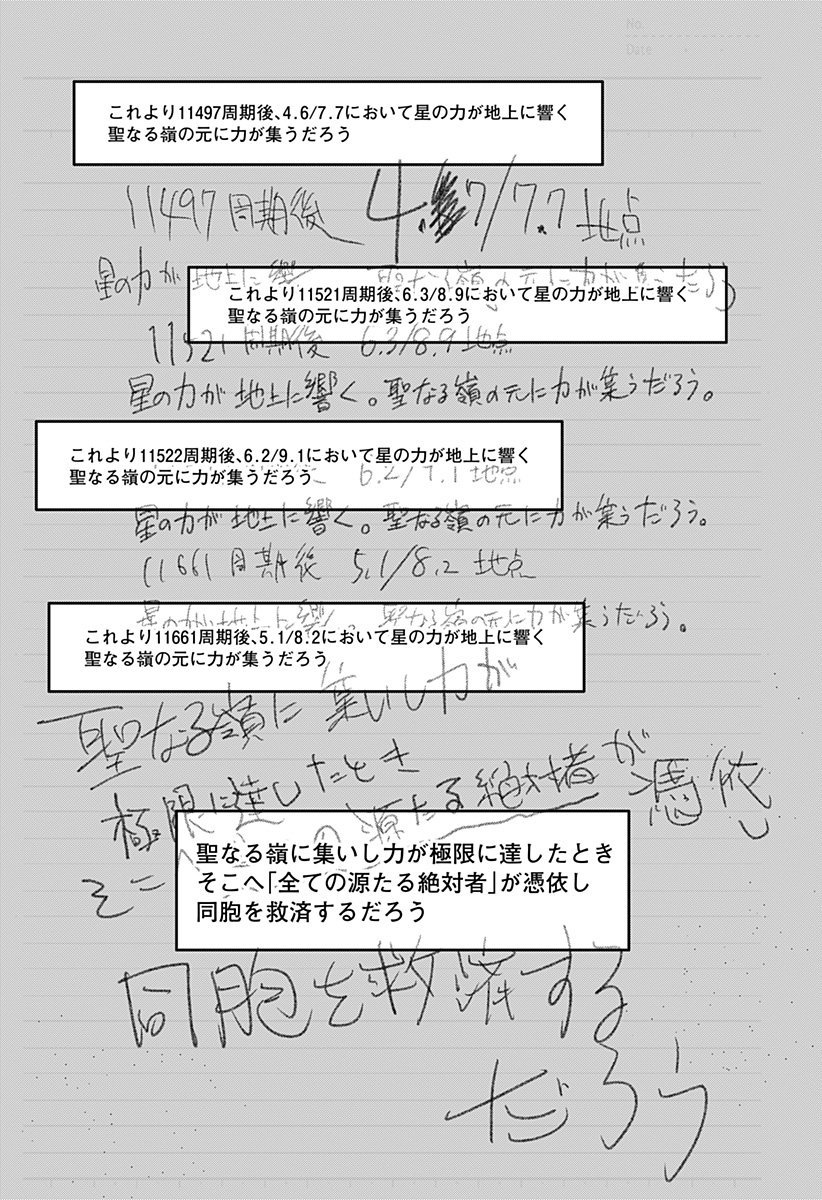 No.
Date
これより11497周期後、4.6/7.7において星の力が地上に響く
聖なる嶺の元に力が集うだろう
11497周期後 4.7/7.7地点
星の力が地上に響 聖なる嶺の元に力が集うだろう
これより11521周期後、6.3/8.9において星の力が地上に響く
聖なる嶺の元に力が集うだろう
11521周期後 6.3/8.9地点
星の力が地上に響く。聖なる嶺の元に力が集うだろう。
これより11522周期後、6.2/9.1において星の力が地上に響く
聖なる嶺の元に力が集うだろう
6.2/9.1地点
星の力が地上に響く。聖なる嶺の元に力が集うだろう。
11661周期後 5.1/8.2地点
星の力が地上に響く。聖なる嶺の元に力が集うだろう。
これより11661周期後、5.1/8.2において星の力が地上に響く
聖なる嶺の元に力が集うだろう
聖なる嶺に集いし力が
極限に達したとき
そこへ の源たる絶対者が憑依し
聖なる嶺に集いし力が極限に達したとき
そこへ「全ての源たる絶対者」が憑依し
同胞を救済するだろう
同胞を救済する
だろう